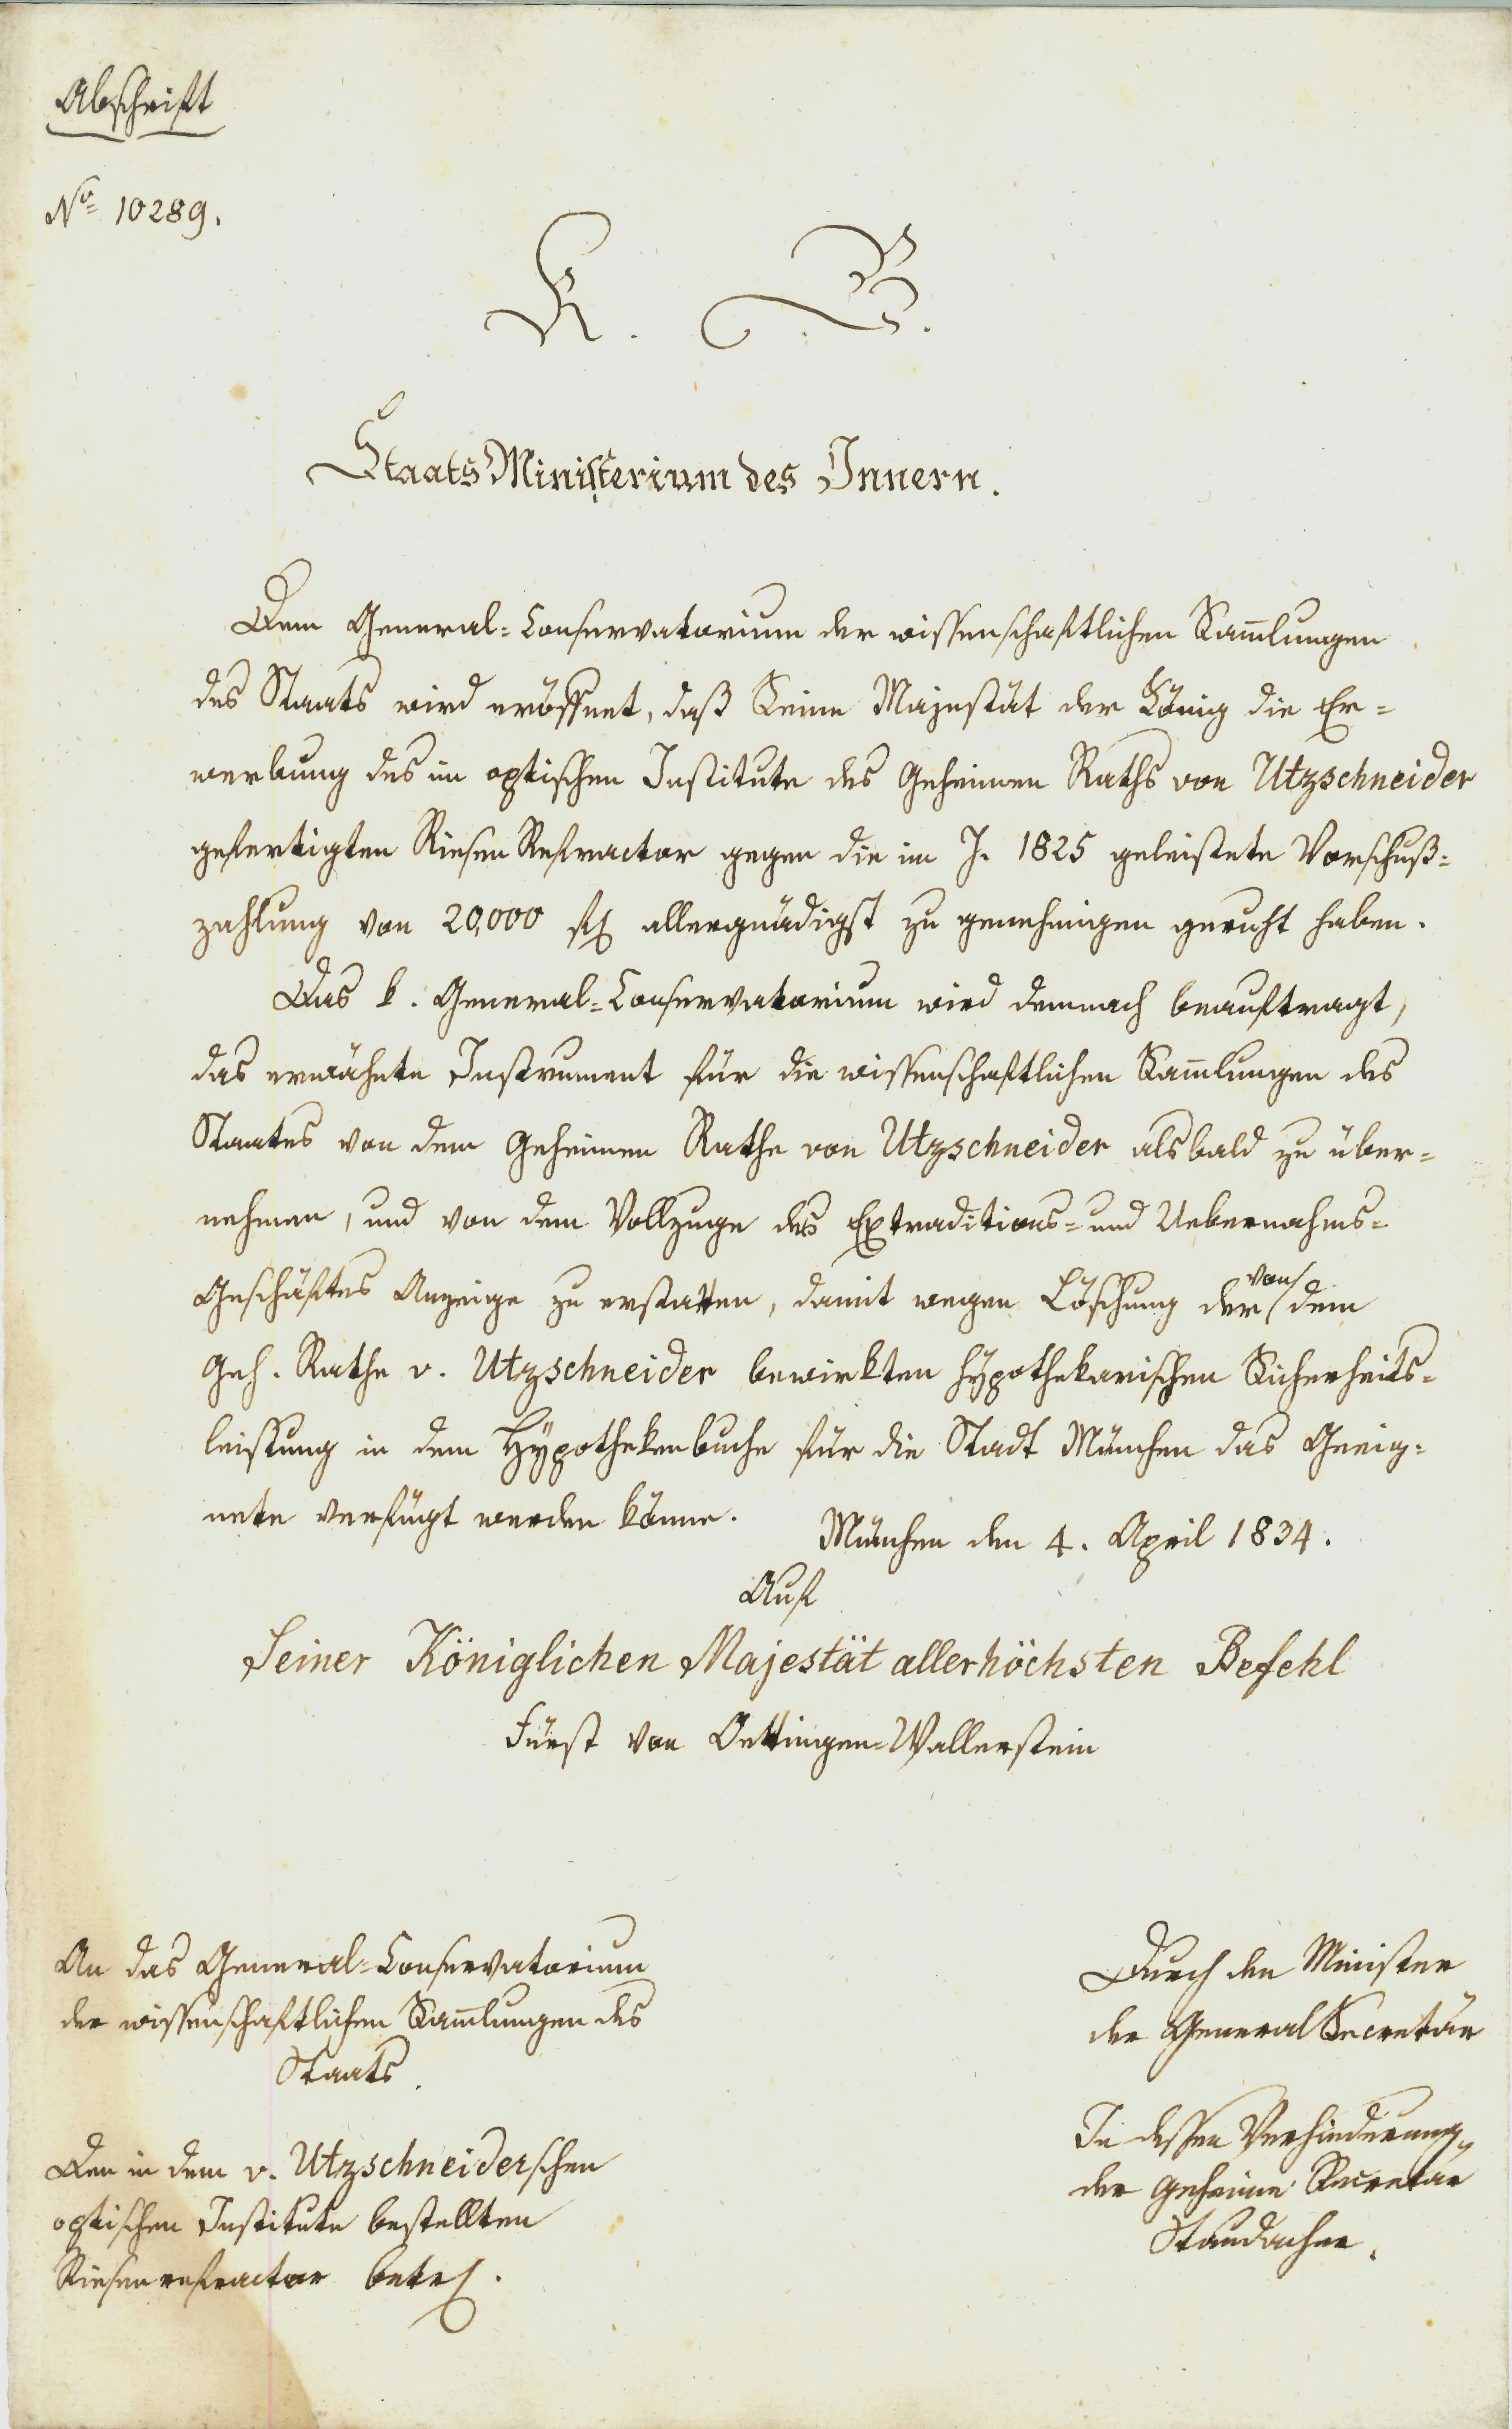 Abschrift
No 10289.
K. B.
Staats Ministerium des Innern.
Dem General-Conservatorium der wissenschaftlichen Sam̅lungen
des Staats wird eröffnet, daß Seine Majestät der König die Er-
werbung des im optischen Institute des Geheimen Raths von Utzschneider
gefertigten Riesen Refractor gegen die im J. 1825 geleistete Vorschuß-
zahlung von 20,000 fl allergnädigst zu genehmigen geruht haben.
Das k. General-Conservatorium wird demnach beauftragt,
das erwähnte Instrument für die wissenschaftlichen Sam̅lungen des
Staates von dem Geheimen Rathe von Utzschneider alsbald zu über-
nehmen, und von dem Vollzuge des Extraditions- und Uebernahms-
Geschäftes Anzeige zu erstatten, damit wegen Löschung der von dem
Geh. Rathe v. Utzschneider bewirkten hypothekarischen Sicherheits-
leistung in dem Hypothekenbuche für die Stadt München das Geeig-
nete verfügt werden könne.
München den 4. April 1834.
Auf
Seiner Königlichen Majestät allerhöchsten Befehl
Fürst von Oettingen-Wallerstein
An das General-Conservatorium
der wissenschaftlichen Sam̅lungen des
Staats.
Den in dem v. Utzschneiderschen
optischen Institute bestellten
Riesenrefractor betr.
Durch den Minister
der General Secretär
In dessen Verhinderung
der Geheime Secretär
Staudacher.